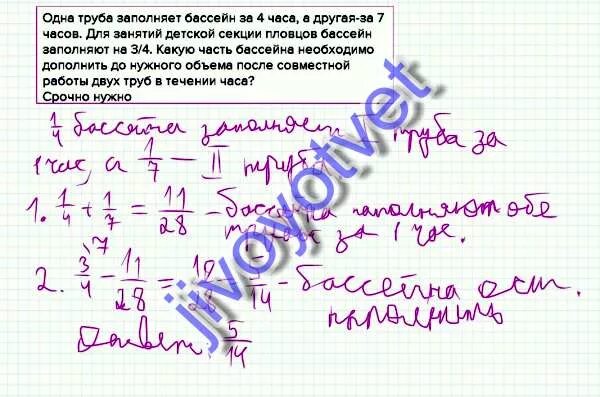 Одна труба заполняет бассейн за 4 часа, а другая-за 7
часов. Для занятий детской секции пловцов бассейн
заполняют на 3/4. Какую часть бассейна необходимо
дополнить до нужного объема после совместной
работы двух труб в течении часа?
Срочно нужно
1/4 бассейна заполняет I труба за
1 час, а 1/7 — II труба
1. 1/4 + 1/7 = 11/28 - бассейна наполняют обе
трубы за 1 час.
2. 3/4 \7 - 11/28 = 10/28 = 5/14 - бассейна ост.
наполнить
Ответ: 5/14
jivoyotvet